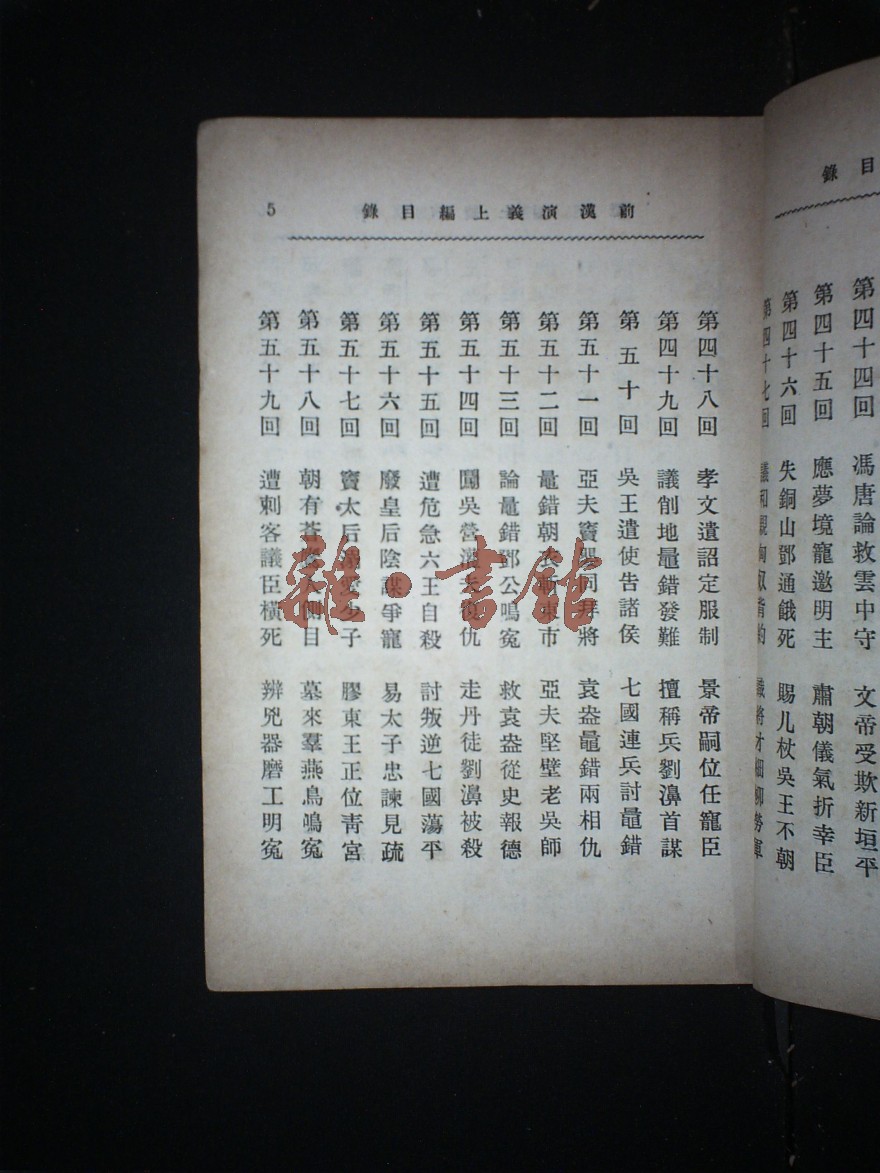 目錄
第四十四回 馮唐論救雲中守 文帝受欺新垣平
第四十五回 應夢境寵邀明主 肅朝儀氣折幸臣
第四十六回 失銅山鄧通餓死 賜几杖吳王不朝
第四十七回 議和親匈奴背約 識將才細柳勞軍
前漢演義上編目錄 5
第四十八回 孝文遺詔定服制 景帝嗣位任寵臣
第四十九回 議削地鼂錯發難 擅稱兵劉濞首謀
第五十回 吳王遣使告諸侯 七國連兵討鼂錯
第五十一回 亞夫竇嬰同拜將 袁盎鼂錯兩相仇
第五十二回 鼂錯朝衣斬東市 亞夫堅壁老吳師
第五十三回 論鼂錯鄧公鳴冤 救袁盎從史報德
第五十四回 闖吳營灌夫復仇 走丹徒劉濞被殺
第五十五回 遭危急六王自殺 討叛逆七國蕩平
第五十六回 廢皇后陰謀爭寵 易太子忠諫見疏
第五十七回 竇太后溺愛少子 膠東王正位青宮
第五十八回 朝有蒼鷹 側目 墓來羣燕鳥鳴冤
第五十九回 遭刺客議臣橫死 辨兇器磨工明冤
雜·書館